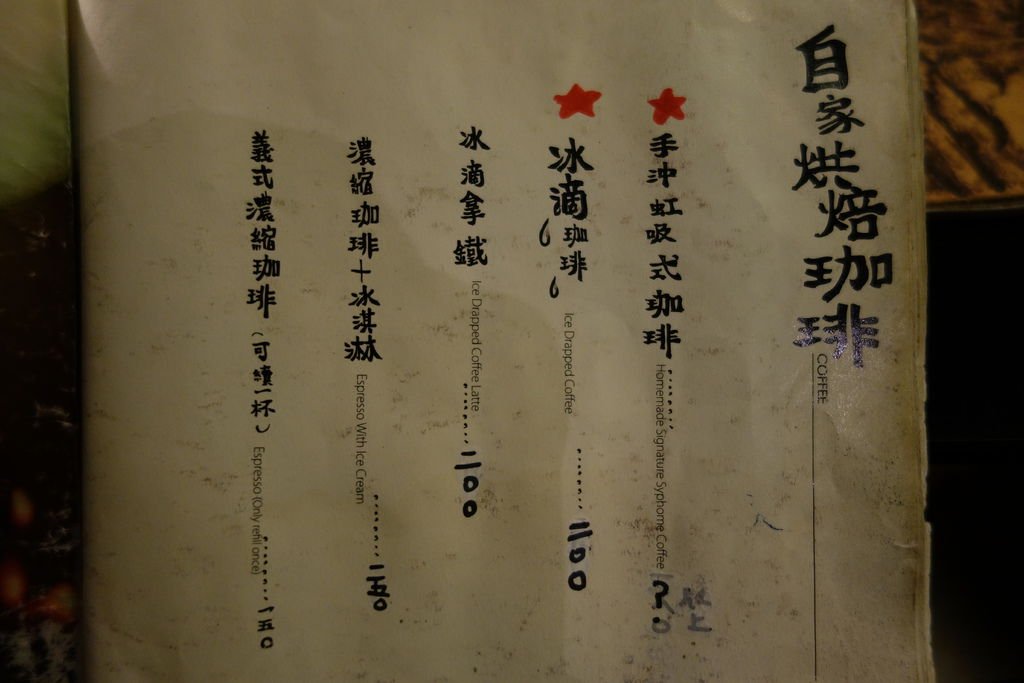 自家烘焙珈琲
COFFEE
手沖虹吸式珈琲
Homemade Signature Syphome Coffee
?
上
冰滴珈琲
Ice Drapped Coffee
二00
冰滴拿鐵
Ice Drapped Coffee Latte
二00
濃縮珈琲+冰淇淋
Espresso With Ice Cream
二五0
義式濃縮珈琲(可續一杯)
Espresso (Only refill once)
一五0